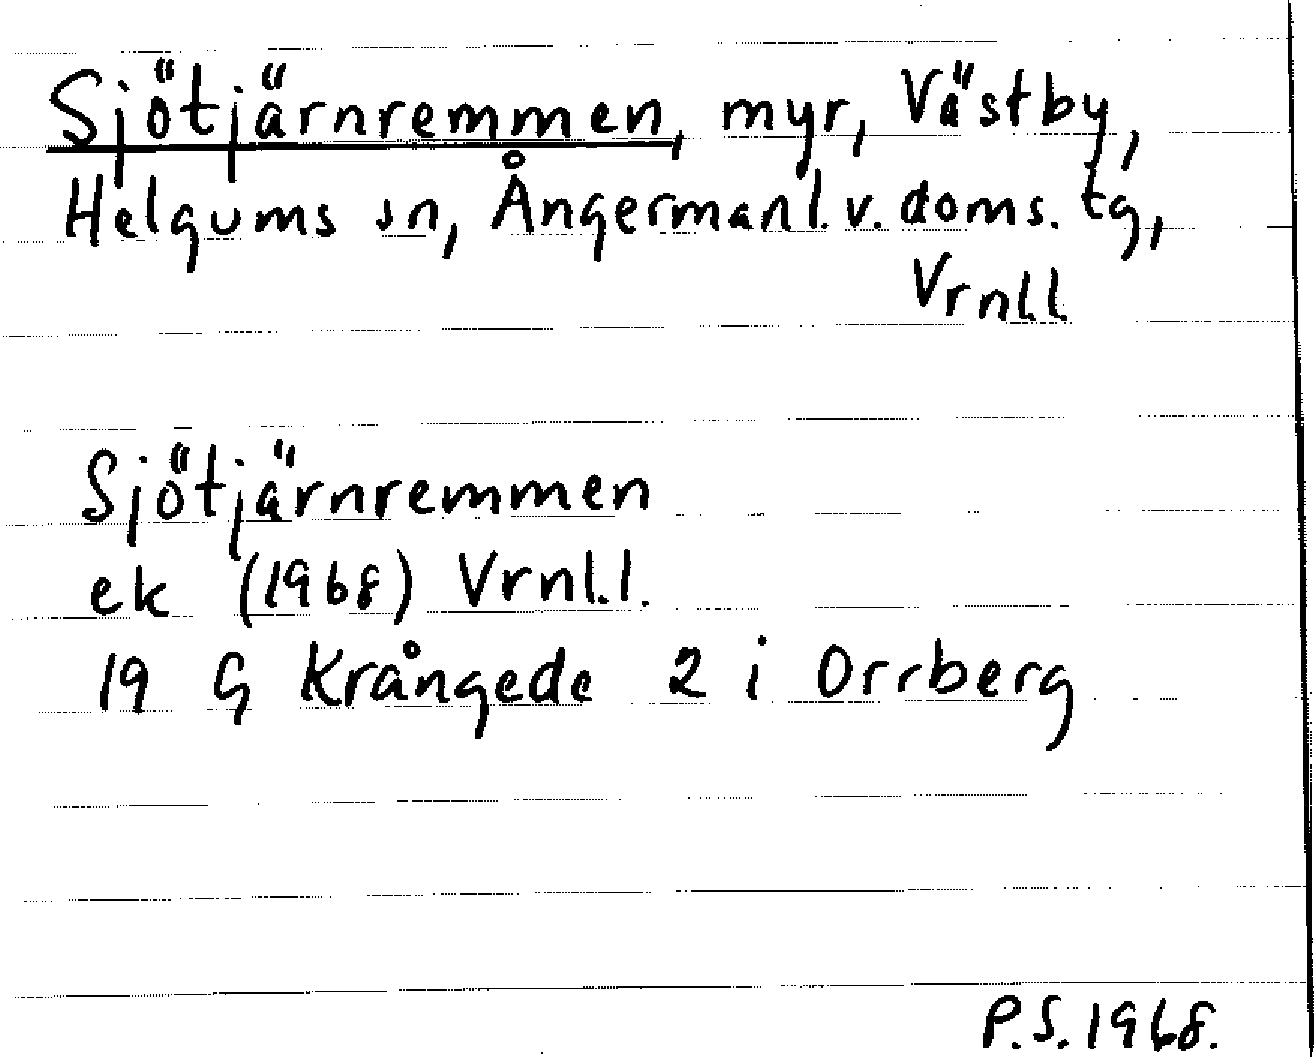 Sjötjärnremmen, myr, Västby,
Helgums sn, Ångermanl. v. doms. tg,
Vrnl.l.
Sjötjärnremmen
ek (1968) Vrnl.l.
19 G Krångede 2 i Orrberg
P.S. 1968.